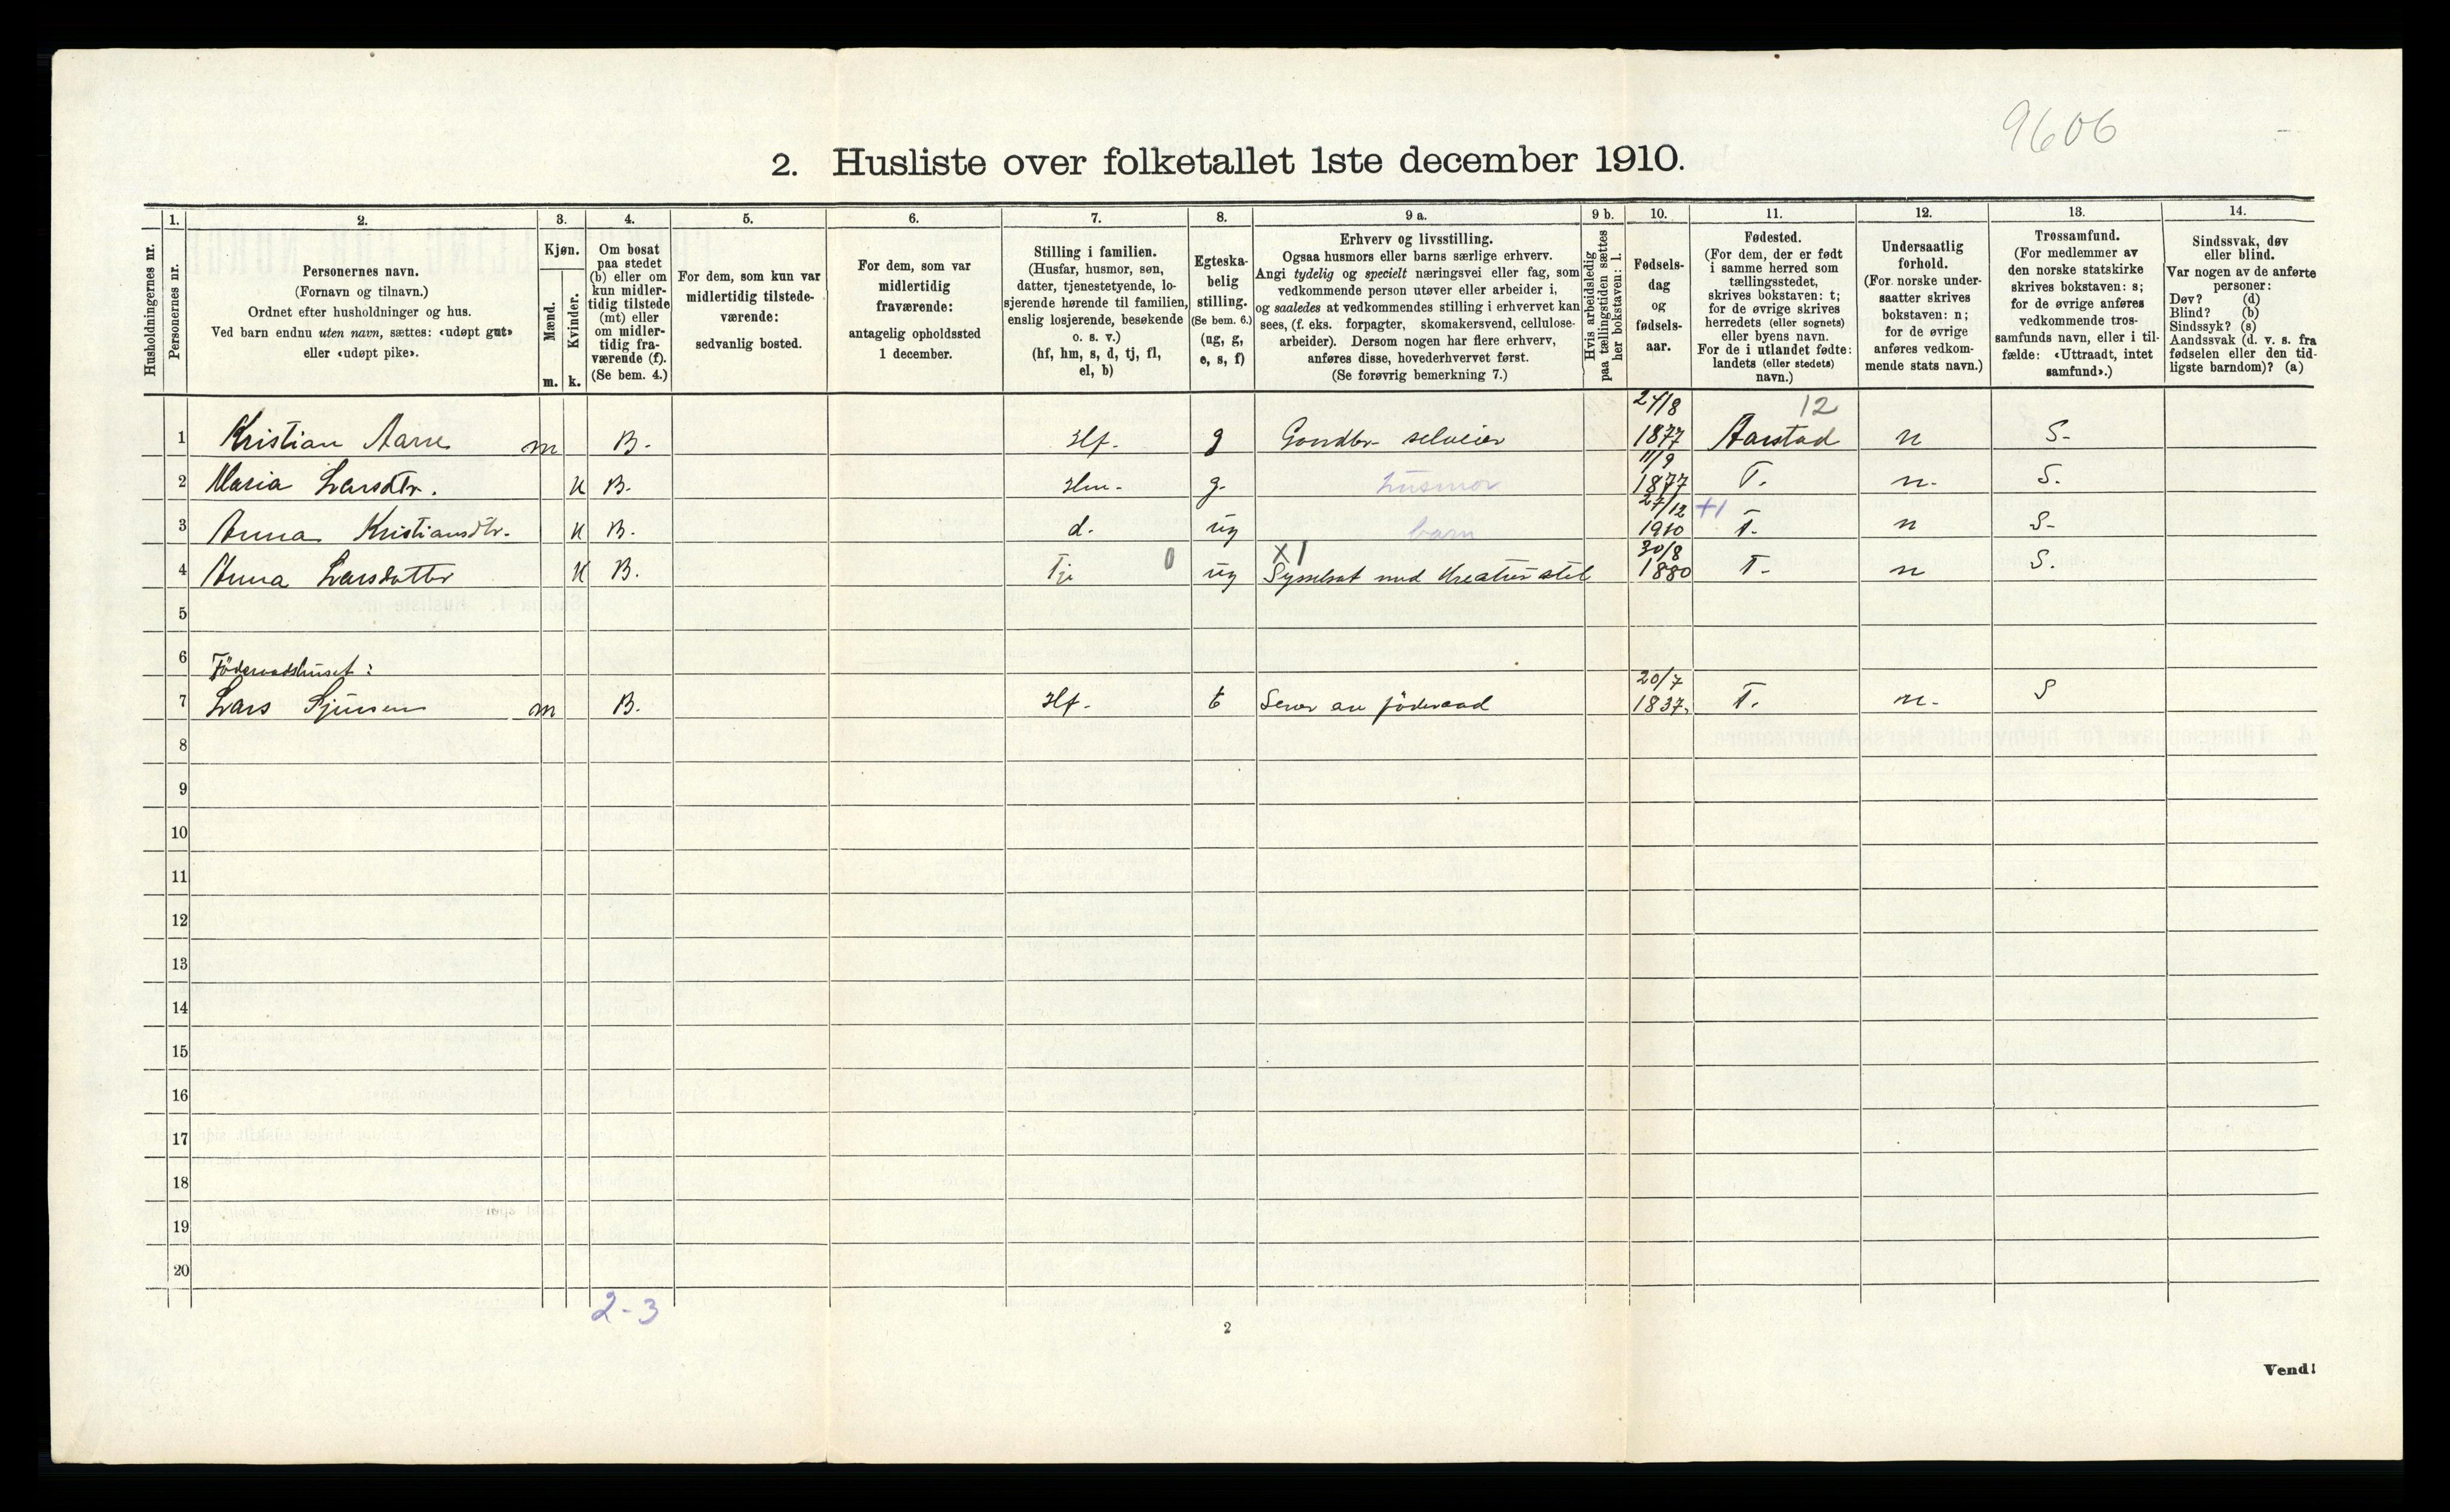 9606
2. Husliste over folketallet 1ste december 1910.
Husholdningernes nr.
1.
Personernes nr.
2.
Personernes navn.
(Fornavn og tilnavn.)
Ordnet efter husholdninger og hus.
Ved barn endnu uten navn, sættes: «udøpt gut»
eller «udøpt pike».
3.
Kjøn.
Mænd.
Kvinder.
m. k.
4.
Om bosat
paa stedet
(b) eller om
kun midler-
tidig tilstede
(mt) eller
om midler-
tidig fra-
værende (f).
(Se bem. 4.)
5.
For dem, som kun var
midlertidig tilstede-
værende:
sedvanlig bosted.
6.
For dem, som var
midlertidig
fraværende:
antagelig opholdssted
1 december.
7.
Stilling i familien.
(Husfar, husmor, søn,
datter, tjenestetyende, lo-
sjerende hørende til familien,
enslig losjerende, besøkende
o. s. v.)
(hf, hm, s, d, tj, fl,
el, b)
8.
Egteska-
belig
stilling.
(Se bem. 6.)
(ug, g,
e, s, f)
9 a.
Erhverv og livsstilling.
Ogsaa husmors eller barns særlige erhverv.
Angi tydelig og specielt næringsvei eller fag, som
vedkommende person utøver eller arbeider i,
og saaledes at vedkommendes stilling i erhvervet kan
sees, (f. eks. forpagter, skomakersvend, cellulose-
arbeider). Dersom nogen har flere erhverv,
anføres disse, hovederhvervet først.
(Se forøvrig bemerkning 7.)
9 b.
Hvis arbeidsledig
paa tællingstiden sættes
her bokstaven: l.
10.
Fødsels-
dag
og
fødsels-
aar.
11.
Fødested.
(For dem, der er født
i samme herred som
tællingsstedet,
skrives bokstaven: t;
for de øvrige skrives
herredets (eller sognets)
eller byens navn.
For de i utlandet fødte:
landets (eller stedets)
navn.)
12.
Undersaatlig
forhold.
(For norske under-
saatter skrives
bokstaven: n;
for de øvrige
anføres vedkom-
mende stats navn.)
13.
Trossamfund.
(For medlemmer av
den norske statskirke
skrives bokstaven: s;
for de øvrige anføres
vedkommende tros-
samfunds navn, eller i til-
fælde: «Uttraadt, intet
samfund».)
14.
Sindssvak, døv
eller blind.
Var nogen av de anførte
personer:
Døv? (d)
Blind? (b)
Sindssyk? (s)
Aandssvak (d. v. s. fra
fødselen eller den tid-
ligste barndom)? (a)
24/8 12
1 Kristian Aarre m B. Hf. g Gaardbr. selveier 1877 Aarstad n S.
11/9
2 Maria Larsdtr. K B. Hm. g. husmor 1877 T. n. S.
27/12 +1
3 Anna Kristiansdtr. K B. d. ug barn 1910 T. n S.
0 X 1 30/8
4 Anna Larsdatter K B. Tj ug Sysselsat med Kreaturstel 1880 T. n S.
5
6 Föderaadshuset:
20/7
7 Lars Sjursen m B. Hf. e Lever av föderaad 1837. T. n. S
8
9
10
11
12
13
14
15
16
17
18
19
20
2-3
2
Vend!